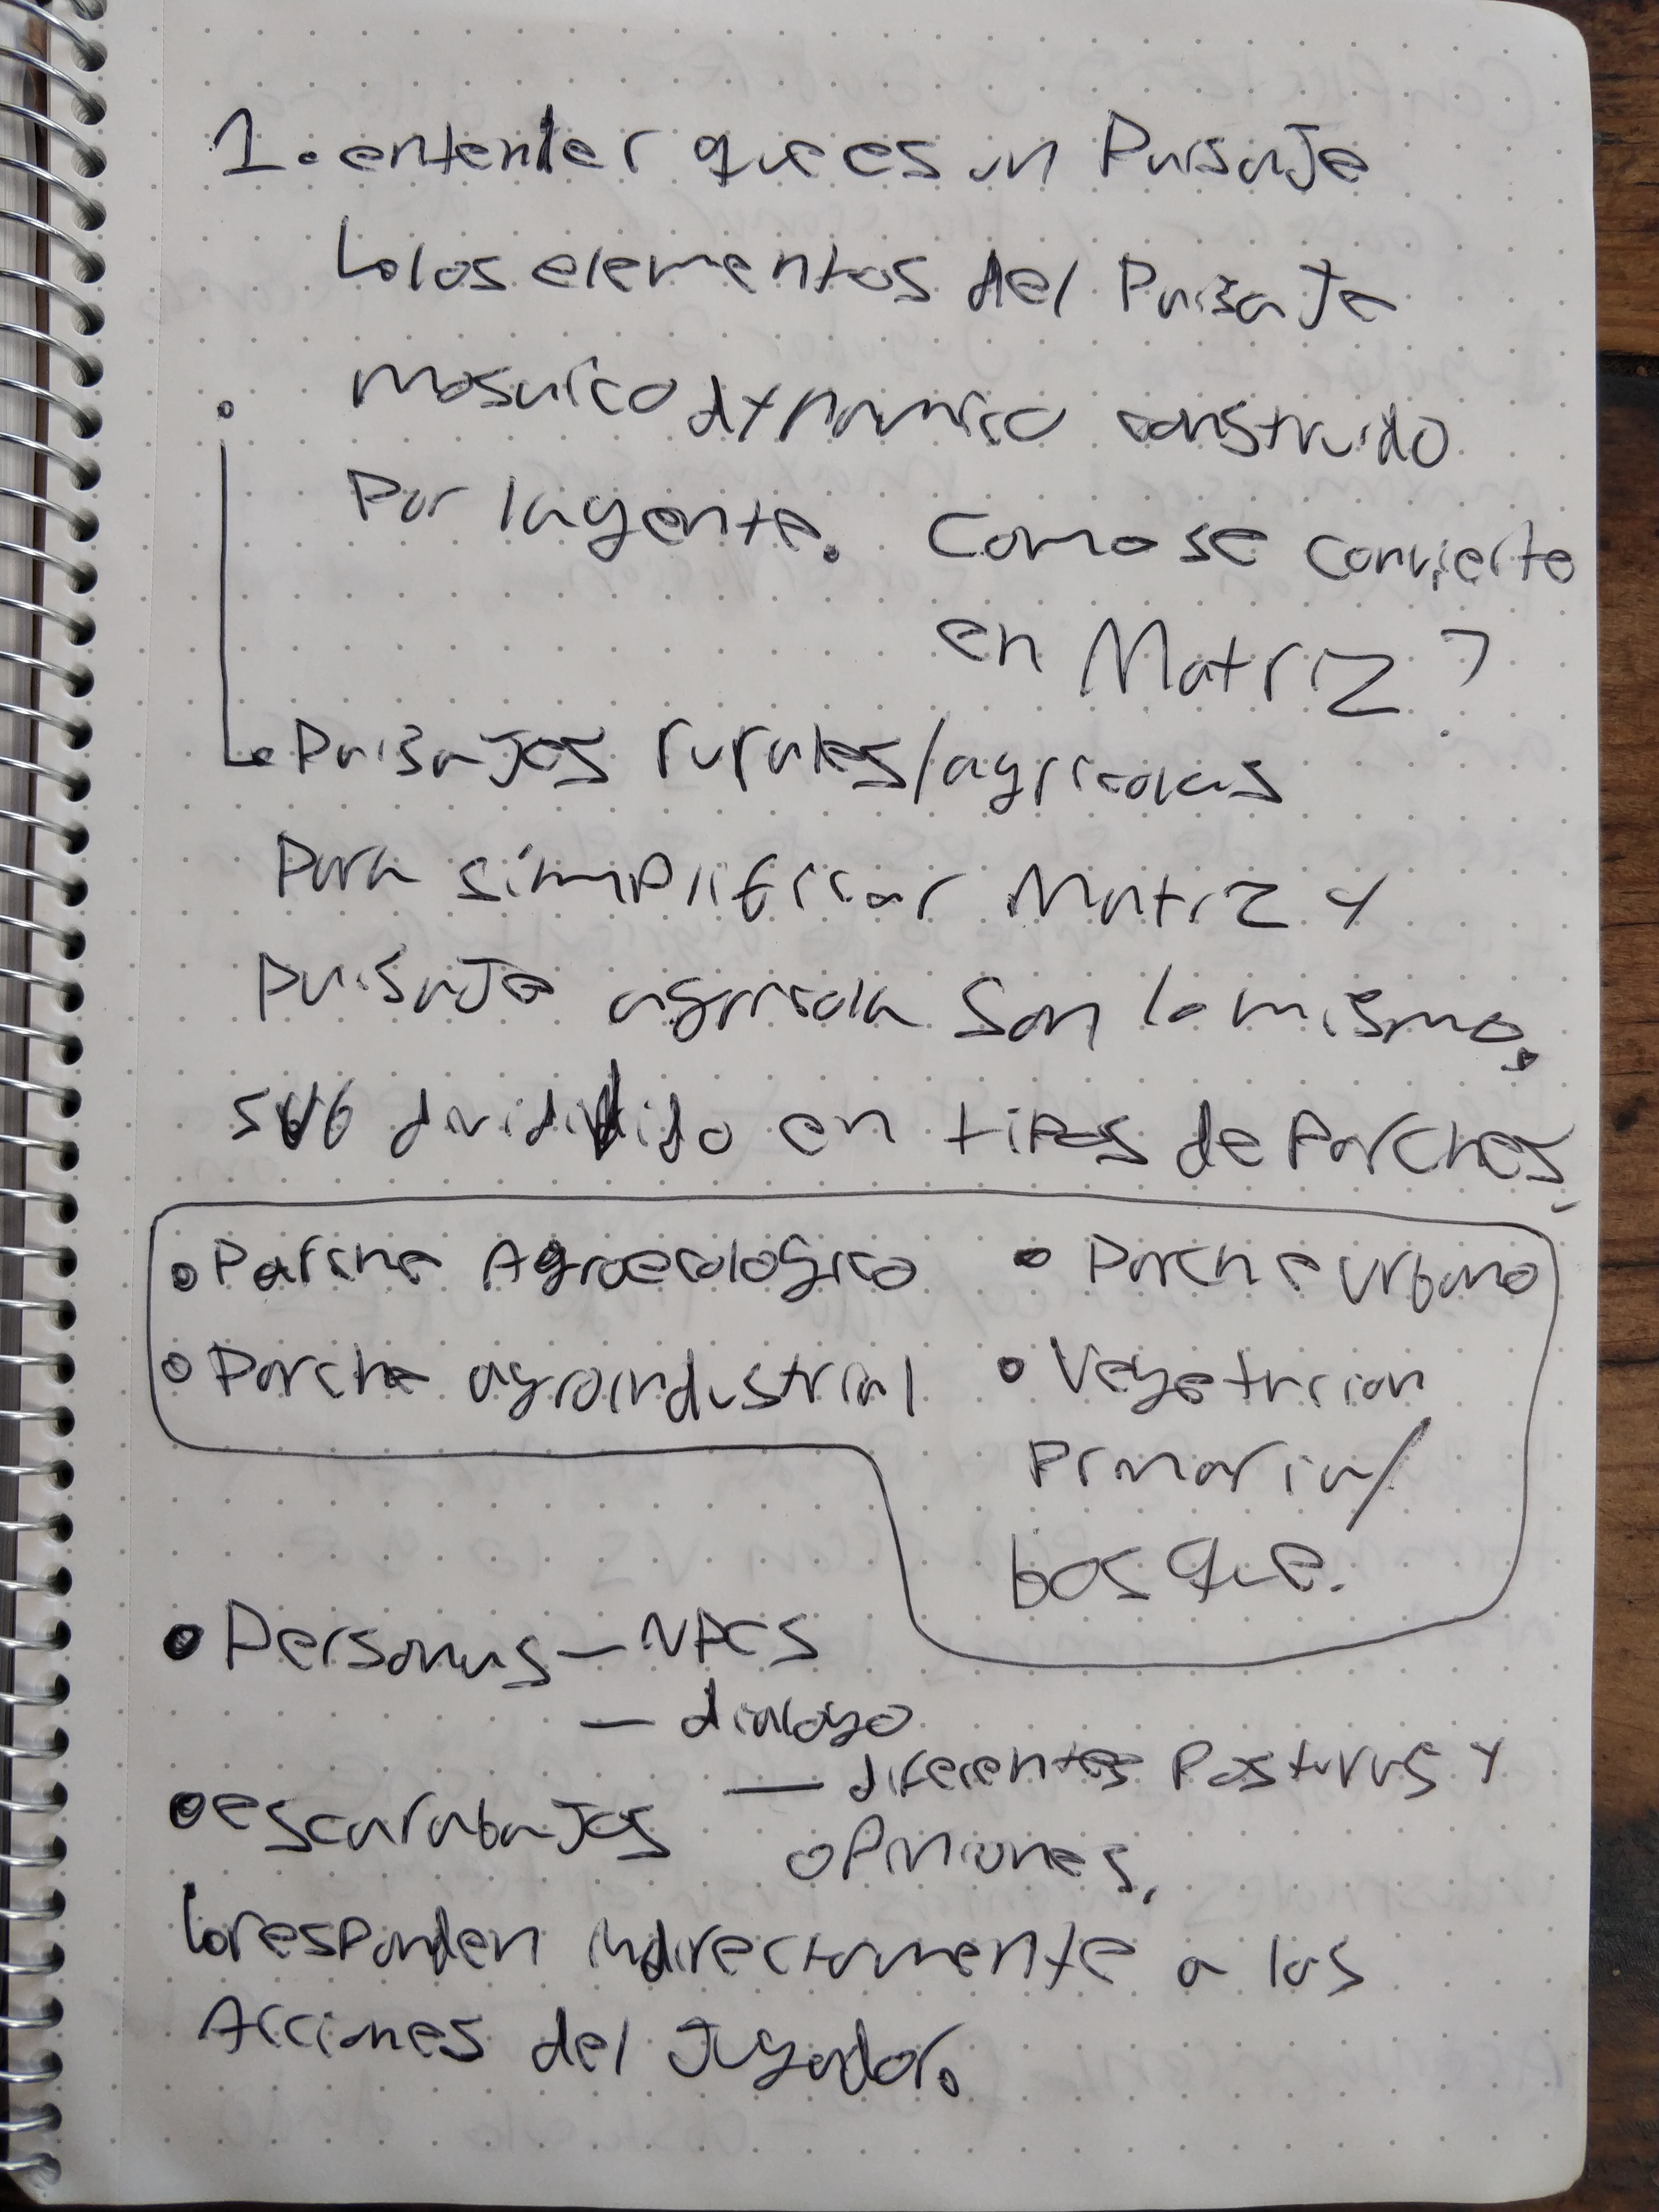 1. entender que es un Paisaje
los elementos del Paisaje
mosaico dynamico construido
Por la gente. Como se convierte
en Matriz?
Paisajes rurales/agricolas
Para simplificar Matriz y
paisaje agricola son lo mismo.
sub dividido en tipos de Parches
• Parche Agroecologico • Parche urbano
• Parche agroindustrial • Vegetacion
Primaria/
bosque.
• Personas — NPCS
— dialogo
— diferentes Posturas y
• escarabajos opiniones,
responden indirectamente a las
Acciones del Jugador.